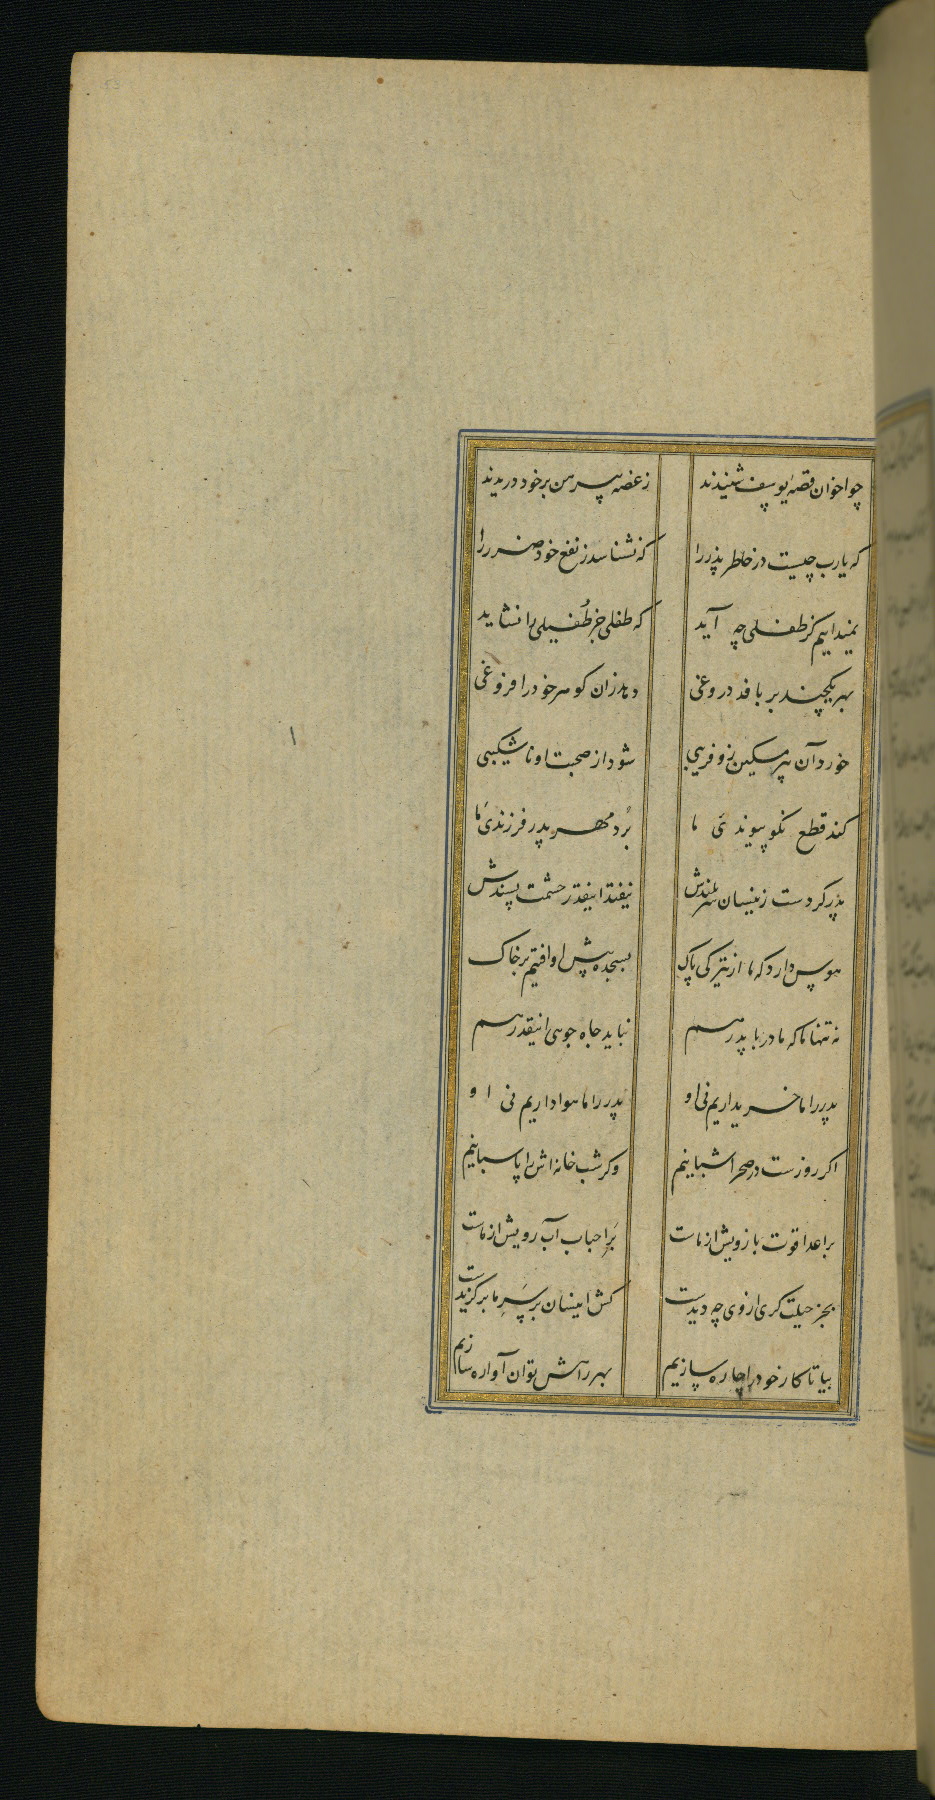 چو اخوان قصهٔ یوسف شنیدند ز غصه پیرهن بر خود دریدند
که یارب چیست در خاطر پدر را که نشناسد ز نفع خود ضرر را
نمیدانیم کز طفلی چه آید که طفلی جز طُفیلی را نشاید
بهر یکچند بر بافد دروغی دهد زان گوهر خود را فروغی
خورد آن پیر مسکین زو فریبی شود از صحبت او ناشکیبی
کند قطع نکو پیوندیٔ ما بُرد مهر پدر فرزندیٔ ما
پدر کردست زینسان سر بلندش نیفتد اینقدر حشمت پسندش
هوس دارد که ما از تیرگی پاک بسجده پیش او افتیم بر خاک
نه تنها ما که مادر با پدر هم نباید جاه جوی اینقدر هم
پدر را ما خریداریم نی او پدر را ما هواداریم نی او
اگر روزست در صحرا شبانیم وگر شب خانه اش را پاسبانیم
بر اعدا قوت بازویش از ماست بَرِ احباب آب رویش از ماست
بجز حیلت گری از وی چه دیدست کش اینسان بر سَرِ ما برگزیدست
بیا تا کار خود را چاره سازیم بهر راهش توان آواره سازیم